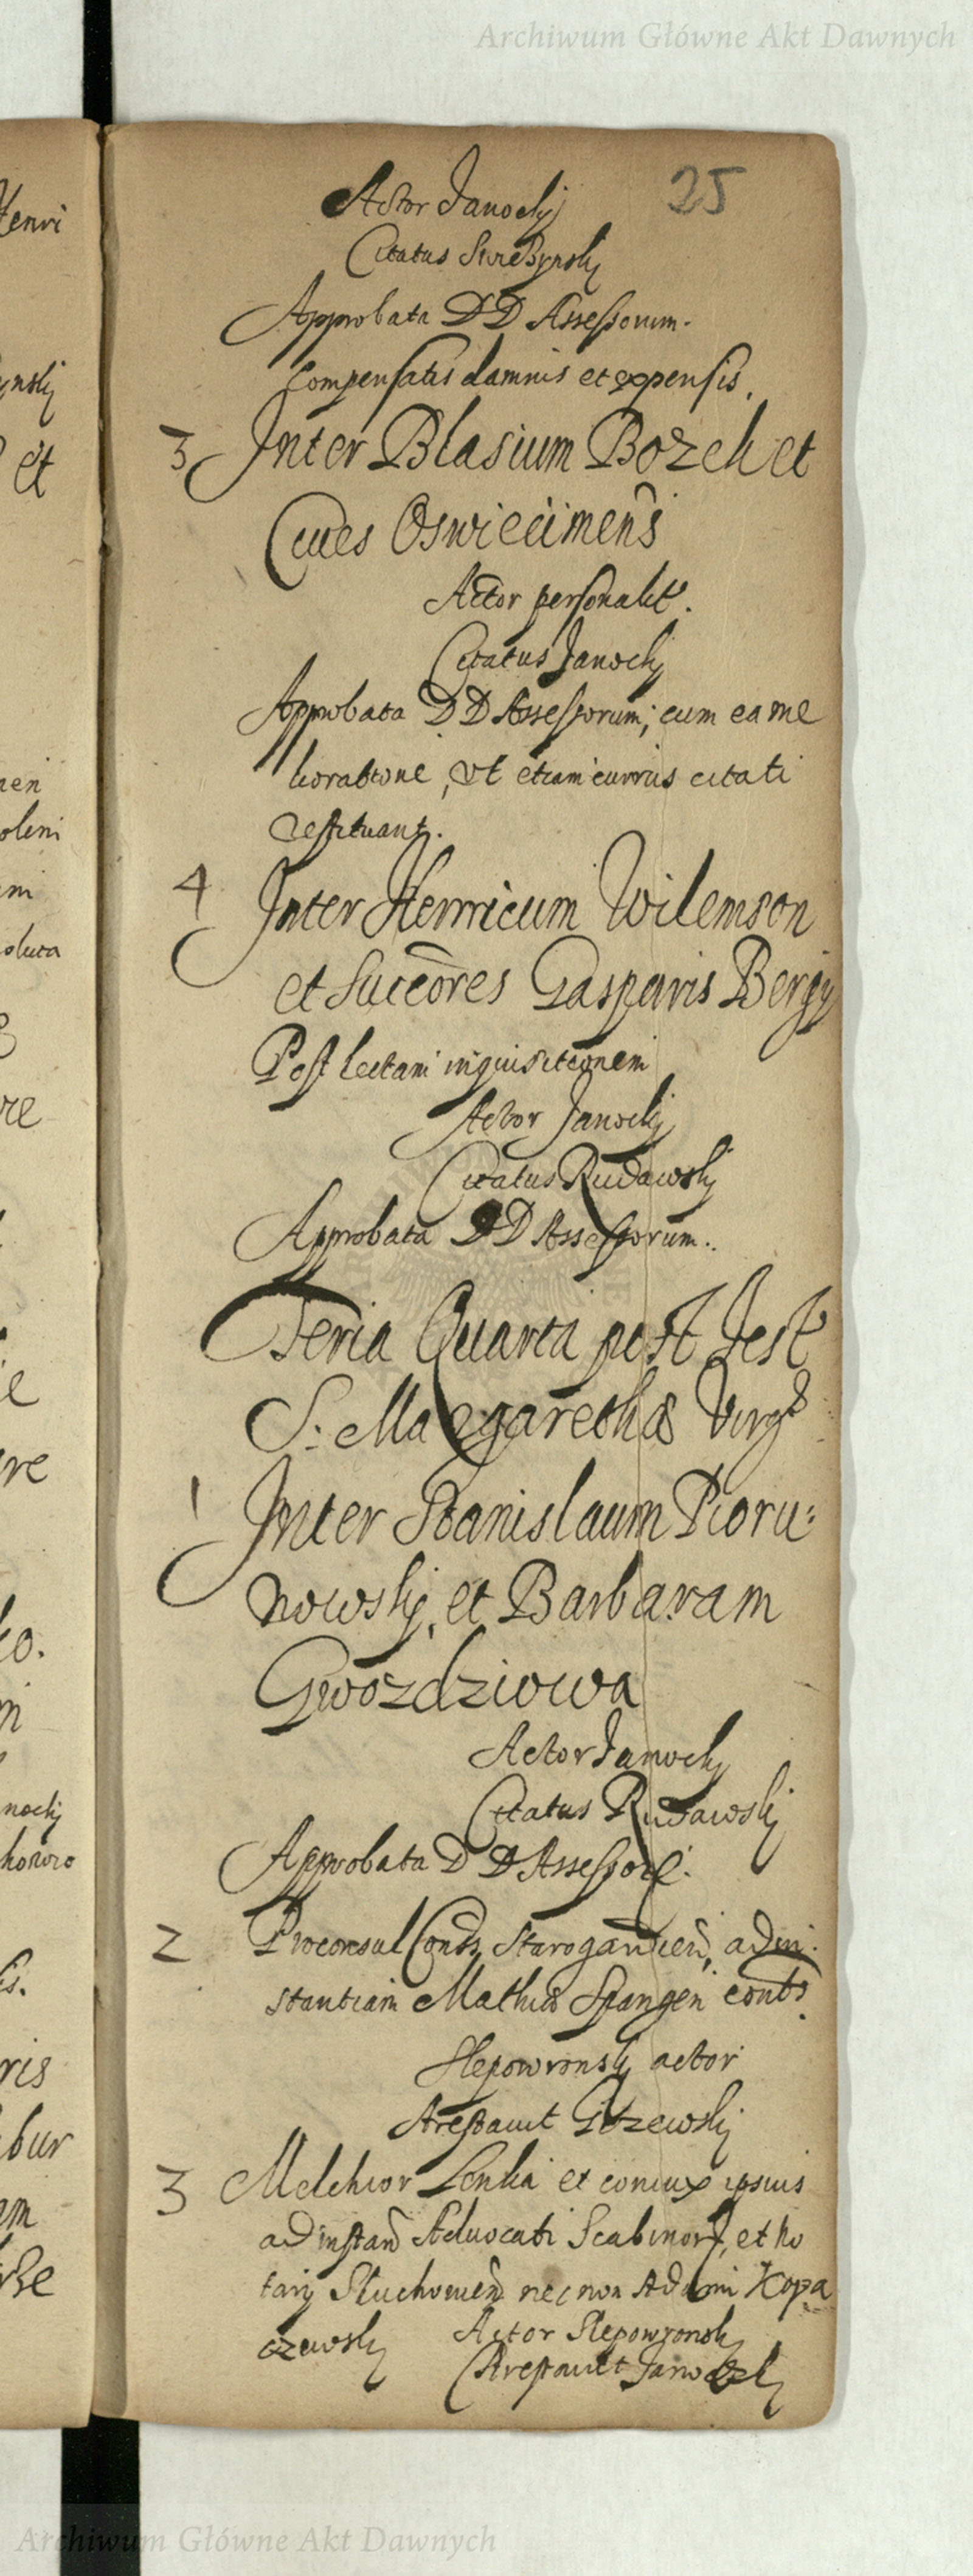 Archiwum Główne Akt Dawnych
25
Actor Janocky
Citatus
Approbata DD Assessorum.
Compensatis damnis et expensis.
3 Inter Blasium Bozek et
Ciues Oswiecimens
Actor personalit.
Citatus Janocky
Approbata DD Assessorum; cum ea me
lioratione, vt etiam currus citati
restituant.
4 Inter Henricum Wilemson
et Succores Gasparis Bergy
Post lectam inquisitionem
Actor Janocky
Citatus Rudawsky
Approbata DD Assessorum.
Feria Quarta post Fest
S: Margarethæ Virg
1 Inter Stanislaum Pioru:
nowsky, et Barbaram
Gwozdziowa
Actor Janocky
Citatus Rudawsky
Approbata DD Assessor.
2 Proconsul Conss Starogardien, ad in:
stantiam Mathiæ Spangen conts.
Slepowronsky actor
Arestauit
3 Melchior Lenka et coniux ipsius
ad instan Aduocati Scabinor, et No
tarij Sluchouien nec non Adami Kopa
czewsky Actor Slepowronsky
Arestauit
Archiwum Główne Akt Dawnych